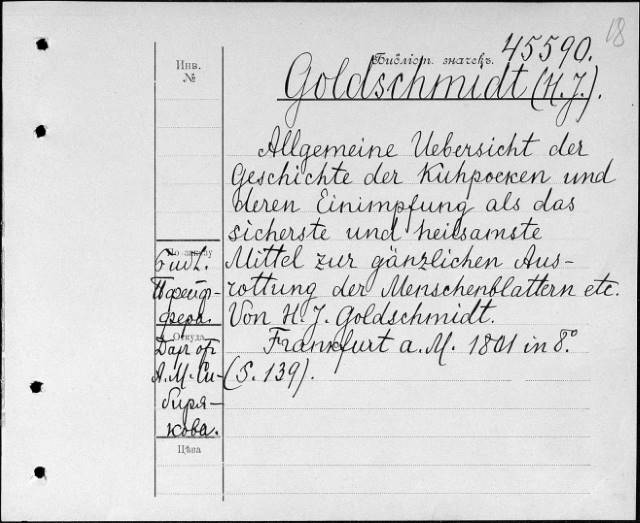 18
Библіот. значекъ. 45590.
Goldschmidt (H. J.).
Инв.
№
Allgemeine Uebersicht der
Geschichte der Kuhpocken und
deren Einimpfung als das
sicherste und heilsamste
Mittel zur gänzlichen Aus-
rottung der Menschenblattern etc.
Von H. J. Goldschmidt.
Frankfurt a. M. 1801 in 8°.
(S. 139).
По заказу
Библ.
Пфейф-
фера.
Откуда.
Дар от
А. М. Си-
биря-
кова.
Цѣна